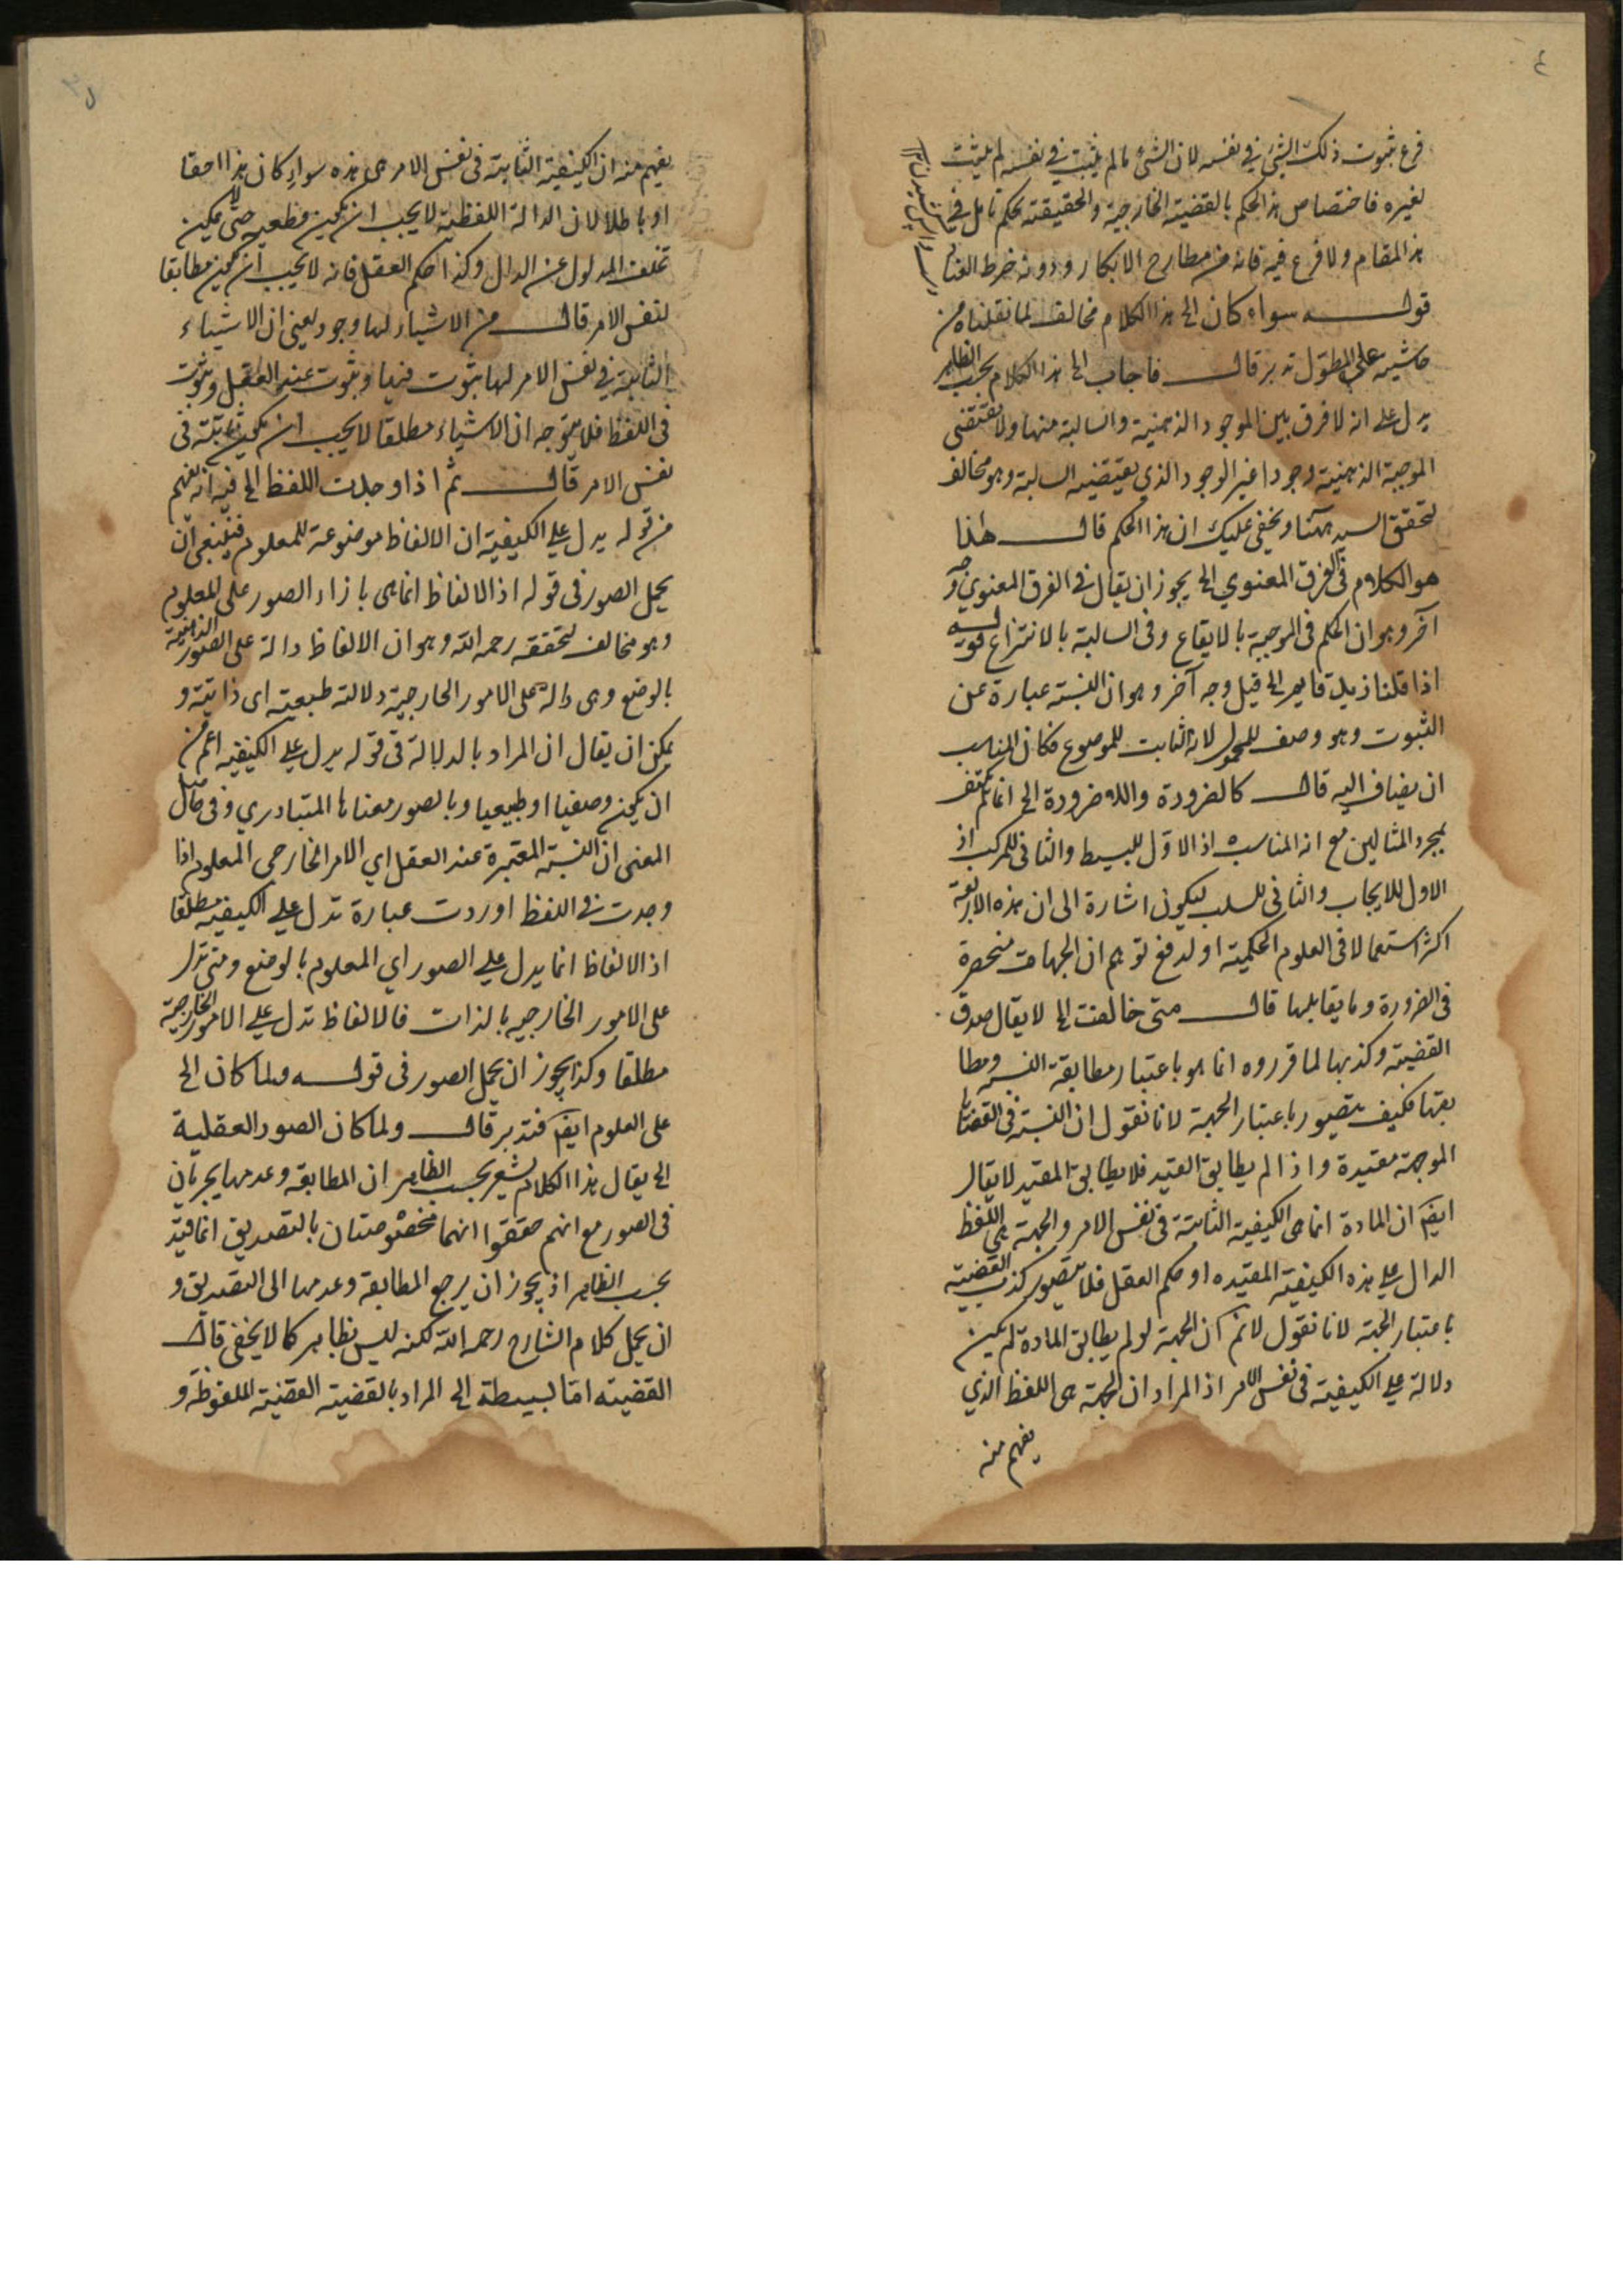 ٤
فرع ثبوت ذلك الشئ في نفسه لان الشئ ما لم يثبت في نفسه لم يثبت
لغيره فاختصاص هذا الحكم بالقضية الخارجية والحقيقته تحكم تامل في
هذا المقام ولا فرع فيه فانه من مطارح الانكار ودونه خرط القتاد
قوله سواء كان الخ هذا الكلام مخالف لما نقلناه من
حاشيته على المطول تدبر قال فاجاب الخ هذا الكلام بحسب الظاهر
يدل على انه لا فرق بين الموجود الذهنية والسالبة منها ولا تقتضى
الموجبة الذهنية وجودا غير الوجود الذي يقتضيه السالبة وهو مخالف
لتحقق السيد ههنا ويخفى عليك ان هذا الحكم قال هذا
هو الكلام في الفرق المعنوي الخ يجوز ان يقال في الفرق المعنوي وجه
آخر وهو ان الحكم فى الموجبة بالايقاع وفى السالبة بالانتزاع قوله
اذا قلنا زيد قايم الخ قيل وجه آخر وهو ان النسبة عبارة عن
الثبوت وهو وصف للمحمول لانه الثابت للموضوع فكان المناسب
ان يضاف اليه قال كالضرورة واللا ضرورة الخ انما لم يكتف
بمجرد المثالين مع انه المناسب اذ الاول للبسيط والثانى للمركب اذ
الاول للايجاب والثانى للسلب ليكون اشارة الى ان هذه الاربعة
اكثر استعمالا فى العلوم الحكمية او لدفع توهم ان الجهات منحصرة
فى الضرورة وما يقابلها قال متى خالفت الخ لا يقال صدق
القضية وكذبها لما قرروه انما هو باعتبار مطابقة النسبة ومطا
بقتها فكيف يتصور باعتبار الجهة لانا نقول ان النسبة فى القضايا
الموجهة مقيدة واذا لم يطابق القيد فلا يطابق المقيد لا يقال
ايضا ان المادة انما هى الكيفية الثابتة فى نفس الامر والجهة هى اللفظ
الدال على هذه الكيفية المقيده او حكم العقل فلا يتصور كذب القضية
باعتبار الجهة لانا نقول لا نم ان الجهة لو لم يطابق المادة لم يكن
دلالة على الكيفية فى نفس الامر اذ المراد ان الجهة هى اللفظ الذي
يفهم منه
يفهم منه ان الكيفية الثابتة فى نفس الامر هى هذه سواء كان هذا حقا
او باطلا لان الدالة اللفظية لا يجب ان يكون قطعيه حتى لا يمكن
تخلف المدلول عن الدال وكذا حكم العقل فانه لا يجب ان يكون مطابقا
لنفس الامر قال من الاشياء لها وجود يعنى ان الاشياء
الثابتة في نفس الامر لها ثبوت فيها وثبوت عند العقل وثبوت
فى اللفظ فلا يتوجه ان الاشياء مطلقا لا يجب ان يكون ثابتة فى
نفس الامر قال ثم اذا وجدت اللفظ الخ فيه انه يفهم
من قوله يدل على الكيفية ان الالفاظ موضوعة للمعلوم فينبغى ان
يحمل الصور فى قوله اذ الالفاظ انما هى بازاء الصور على المعلوم
وهو مخالف لتحققه رحمه الله وهو ان الالفاظ دالة على الصور الذهنية
بالوضع وهى دالة على الامور الخارجية دلالة طبيعية اى ذاتية و
يمكن ان يقال ان المراد بالدلالة فى قوله يدل على الكيفيه اعم من
ان يكون وضعيا او طبيعيا وبالصور معناها المتبادري وفى حاصل
المعنى ان النسبة المعتبرة عند العقل اي الامر الخارجى المعلوم اذا
وجدت فى اللفظ اوردت عبارة تدل على الكيفيه مطلقا
اذ الالفاظ انما يدل على الصور اي المعلوم بالوضع ومتى تدل
على الامور الخارجيه بالذات فالالفاظ تدل على الامور الخارجية
مطلقا وكذا يجوز ان يحمل الصور فى قوله ولما كان الخ
على العلوم ايضا فتدبر قال ولما كان الصور العقلية
الخ يقال هذا الكلام يشعر بحسب الظاهر ان المطابقه وعدمها يجريان
فى الصور مع انهم حققوا انهما مخصوصتان بالتصديق انما قيد
بحسب الظاهر اذ يجوز ان يرجع المطابقة وعدمها الى التصديق و
ان يحمل كلام الشارح رحمه الله لكنه ليس بظاهر كما لا يخفى قال
القضيته اما لبسيطة الخ المراد بالقضية القضية الملفوظة و